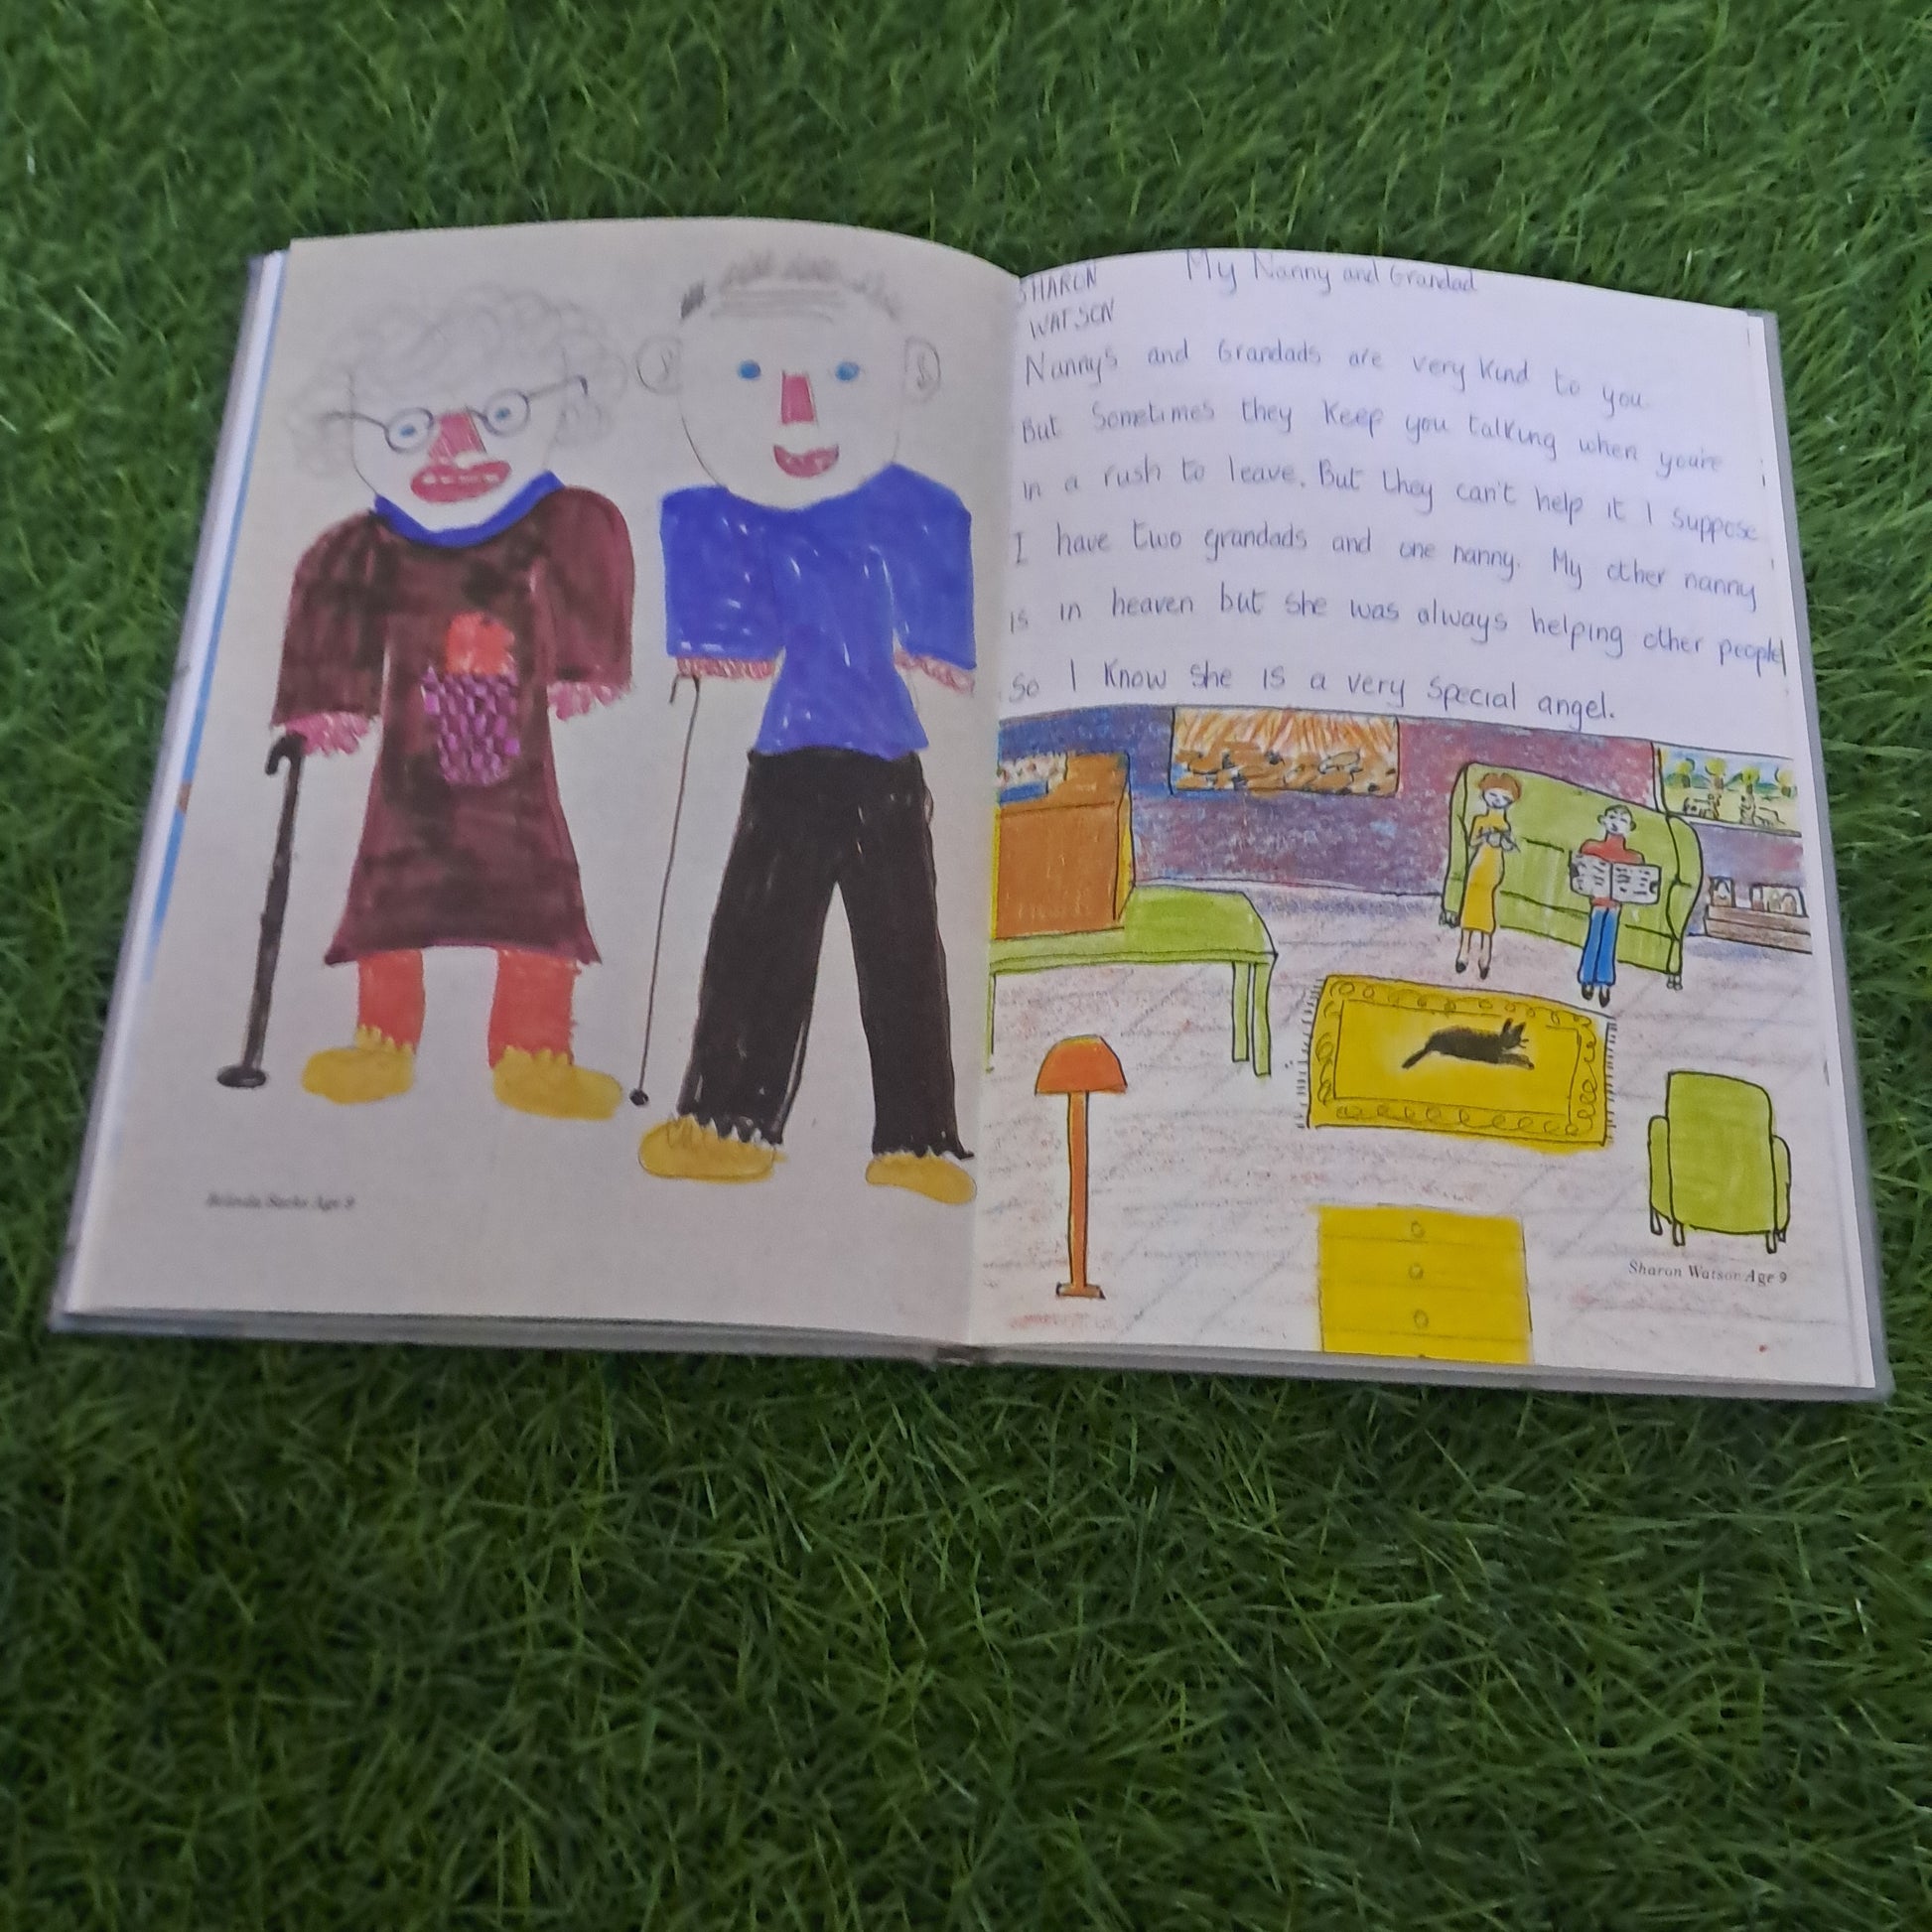 Age 9
SHARON My Nanny and Grandad
WATSON
Nanny's and Grandads are very kind to you
But Sometimes they keep you talking when you're
in a rush to leave. But they can't help it I suppose
I have two grandads and one nanny. My other nanny
is in heaven but she was always helping other people
so I know she is a very special angel.
Sharon Watson Age 9